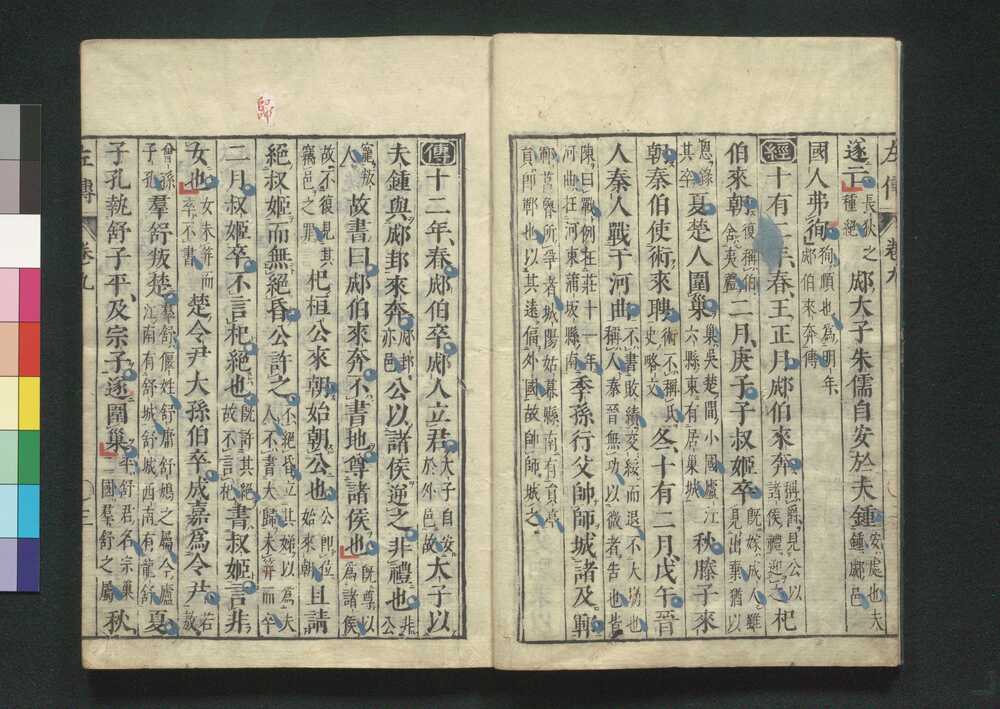 遂亡長狄之種絕郕大子朱儒自安於夫鍾安處也夫鍾郕邑
國人弗徇徇順也為明年郕伯來奔傳
經十有二年春王正月郕伯來奔稱爵見公以諸侯禮迎之杞
伯來朝復稱伯舍夷禮二月庚子子叔姬卒既嫁成人雖見出棄猶以
恩錄其卒夏楚人圍巢巢吳楚間小國廬江六縣東有居巢城秋滕子來
朝秦伯使術來聘術不稱氏史略文冬十有二月戊午晉
人秦人戰于河曲不書敗績交綏而退不大崩也稱人秦晉無功以微者告也皆
陳曰戰例在莊十一年河曲在河東蒲坂縣南季孫行父帥師城諸及鄆
鄆莒魯所爭者城陽姑幕縣南有員亭員即鄆也以其遠偪外國故帥師城之
左傳 卷九
傳十二年春郕伯卒郕人立君大子自安於外邑故大子以
夫鍾與郕邽來奔郕邽亦邑公以諸侯逆之非禮也非公
寵叛人故書曰郕伯來奔不書地尊諸侯也既尊以為諸侯
故不復見其竊邑之罪杞桓公來朝始朝公也公即位始來朝且請
絕叔姬而無絕昏公許之不絕昏立其娣以為夫人不書大歸未筓而卒
二月叔姬卒不言杞絕也既許其絕故不言杞書叔姬言非
女也女未筓而卒不書楚令尹大孫伯卒成嘉為令尹若敖
曾孫子孔羣舒叛楚羣舒偃姓舒庸舒鳩之屬今廬江南有舒城舒城西南有龍舒夏
子孔執舒子平及宗子遂圍巢平舒君名宗巢二國羣舒之屬秋
左傳 卷九 三